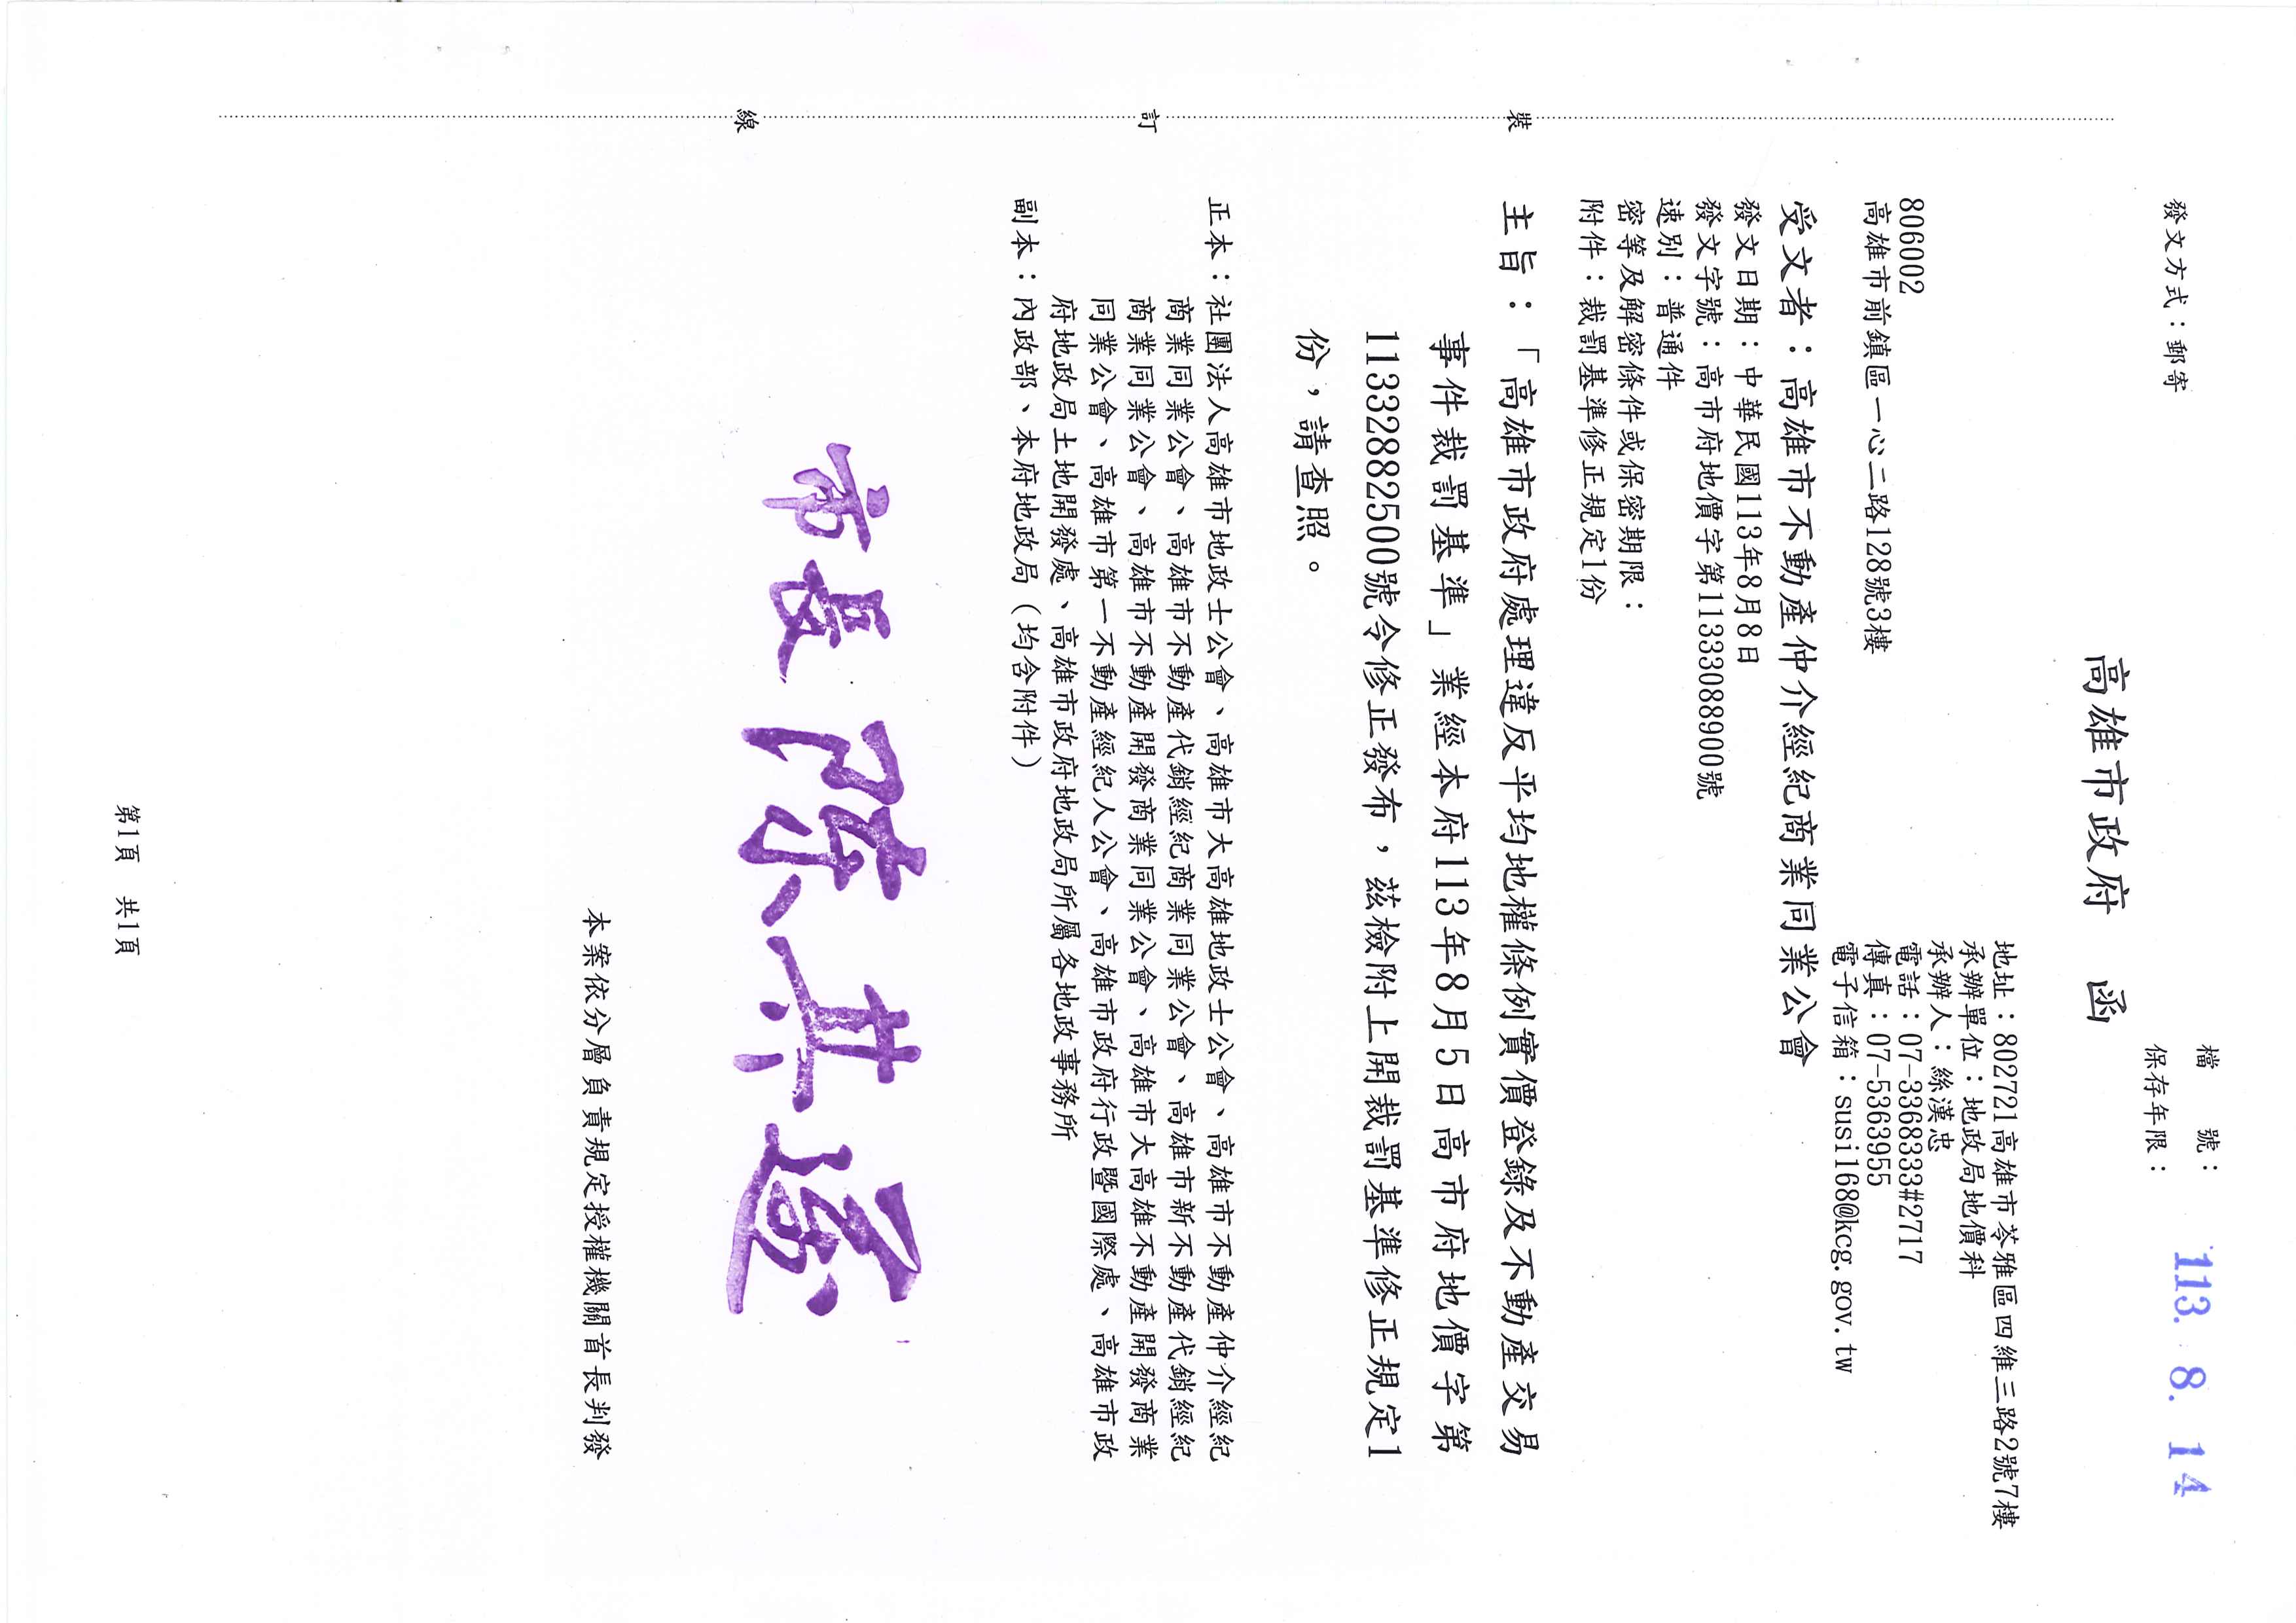 發文方式：郵寄
檔　　號：
保存年限：
113. 8. 14
高雄市政府　函
地址：802721高雄市苓雅區四維三路2號7樓
承辦單位：地政局地價科
承辦人：絲漢忠
電話：07-3368333#2717
傳真：07-5363955
電子信箱：susi168@kcg.gov.tw
806002
高雄市前鎮區一心二路128號3樓
受文者：高雄市不動產仲介經紀商業同業公會
發文日期：中華民國113年8月8日
發文字號：高市府地價字第11333088900號
速別：普通件
密等及解密條件或保密期限：
附件：裁罰基準修正規定1份
主旨：「高雄市政府處理違反平均地權條例實價登錄及不動產交易
事件裁罰基準」業經本府113年8月5日高市府地價字第
11332882500號令修正發布，茲檢附上開裁罰基準修正規定1
份，請查照。
正本：社團法人高雄市地政士公會、高雄市大高雄地政士公會、高雄市不動產仲介經紀
商業同業公會、高雄市不動產代銷經紀商業同業公會、高雄市新不動產代銷經紀
商業同業公會、高雄市不動產開發商業同業公會、高雄市大高雄不動產開發商業
同業公會、高雄市第一不動產經紀人公會、高雄市政府行政暨國際處、高雄市政
府地政局土地開發處、高雄市政府地政局所屬各地政事務所
副本：內政部、本府地政局（均含附件）
市長 陳其邁
本案依分層負責規定授權機關首長判發
裝
訂
線
第1頁　共1頁